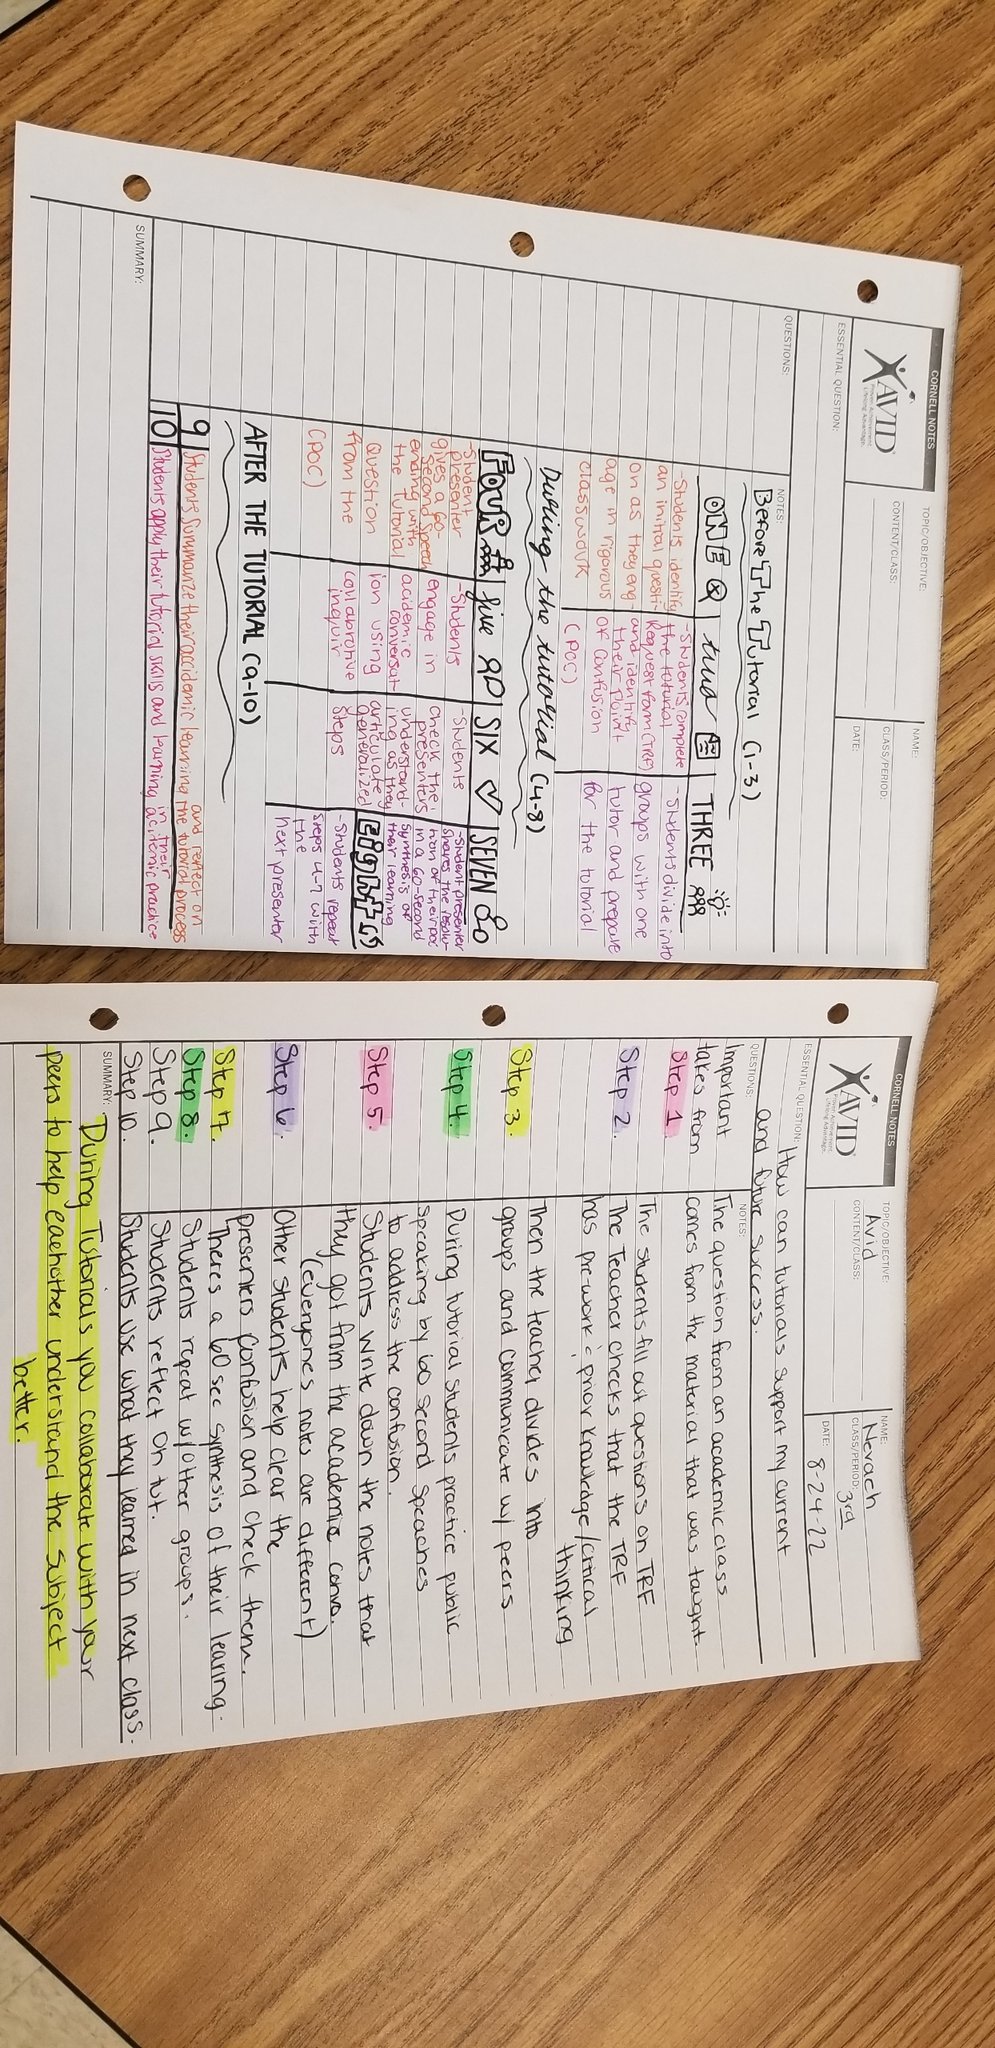 CORNELL NOTES
TOPIC/OBJECTIVE:
NAME:
CLASS/PERIOD:
CONTENT/CLASS:
DATE:
AVID
Proven Achievement.
Lifelong Advantage.
ESSENTIAL QUESTION:
QUESTIONS:
NOTES:
Before The Tutorial (1-3)
ONE
two
THREE
-Students identify
an initial questi-
on as they eng-
age in rigorous
classwork
-Students complete
the tutorial
Request form (TRF)
and identify
their point
of confusion
(POC)
-Students divide into
groups with one
tutor and prepare
for the tutorial
During the tutorial (4-8)
FOUR
five
SIX
SEVEN
-Student
presenter
gives a 60-
second speech
ending with
the Tutorial
Question
from the
(POC)
-Students
engage in
acidemic
conversat-
ion using
collabrotive
inquir
Students
check the
presenters
understand-
ing as they
articulate
generalized
steps
-Student presenter
shares the resolu-
tion of their poc
in a 60-second
synthesis of
their learning
Eight
-Students repeat
steps 4-7 with
the
next presenter
AFTER THE TUTORIAL (9-10)
9 Students summarize their accidemic learning and reflect on the tutorial process
10 Students apply their tutorial skills and learning in their acidemic practice
SUMMARY:
CORNELL NOTES
TOPIC/OBJECTIVE:
Avid
NAME: Nevaeh
CLASS/PERIOD: 3rd
CONTENT/CLASS:
DATE: 8-24-22
AVID
Proven Achievement.
Lifelong Advantage.
ESSENTIAL QUESTION: How can tutorials support my current
and future success.
QUESTIONS:
NOTES:
Important
takes from
The question from an academic class
comes from the material that was taught.
Step 1.
The students fill out questions on TRF
Step 2.
The Teacher checks that the TRF
has pre-work & prior knowledge/critical
thinking
Step 3.
Then the teacher divides into
groups and communicate w/ peers
Step 4.
During tutorial students practice public
speaking by 60 second speaches
to address the confusion.
Step 5.
Students write down the notes that
they got from the academic convo.
(everyones notes are different)
Step 6.
Other students help clear the
presenters confusion and check them.
Step 7.
Theres a 60 sec synthesis of their learing.
Step 8.
Students repeat w/other groups.
Step 9.
Students reflect on tut.
Step 10.
Students use what they learned in next class.
SUMMARY: During Tutorials you collaborate with your
peers to help eachother understand the subject
better.